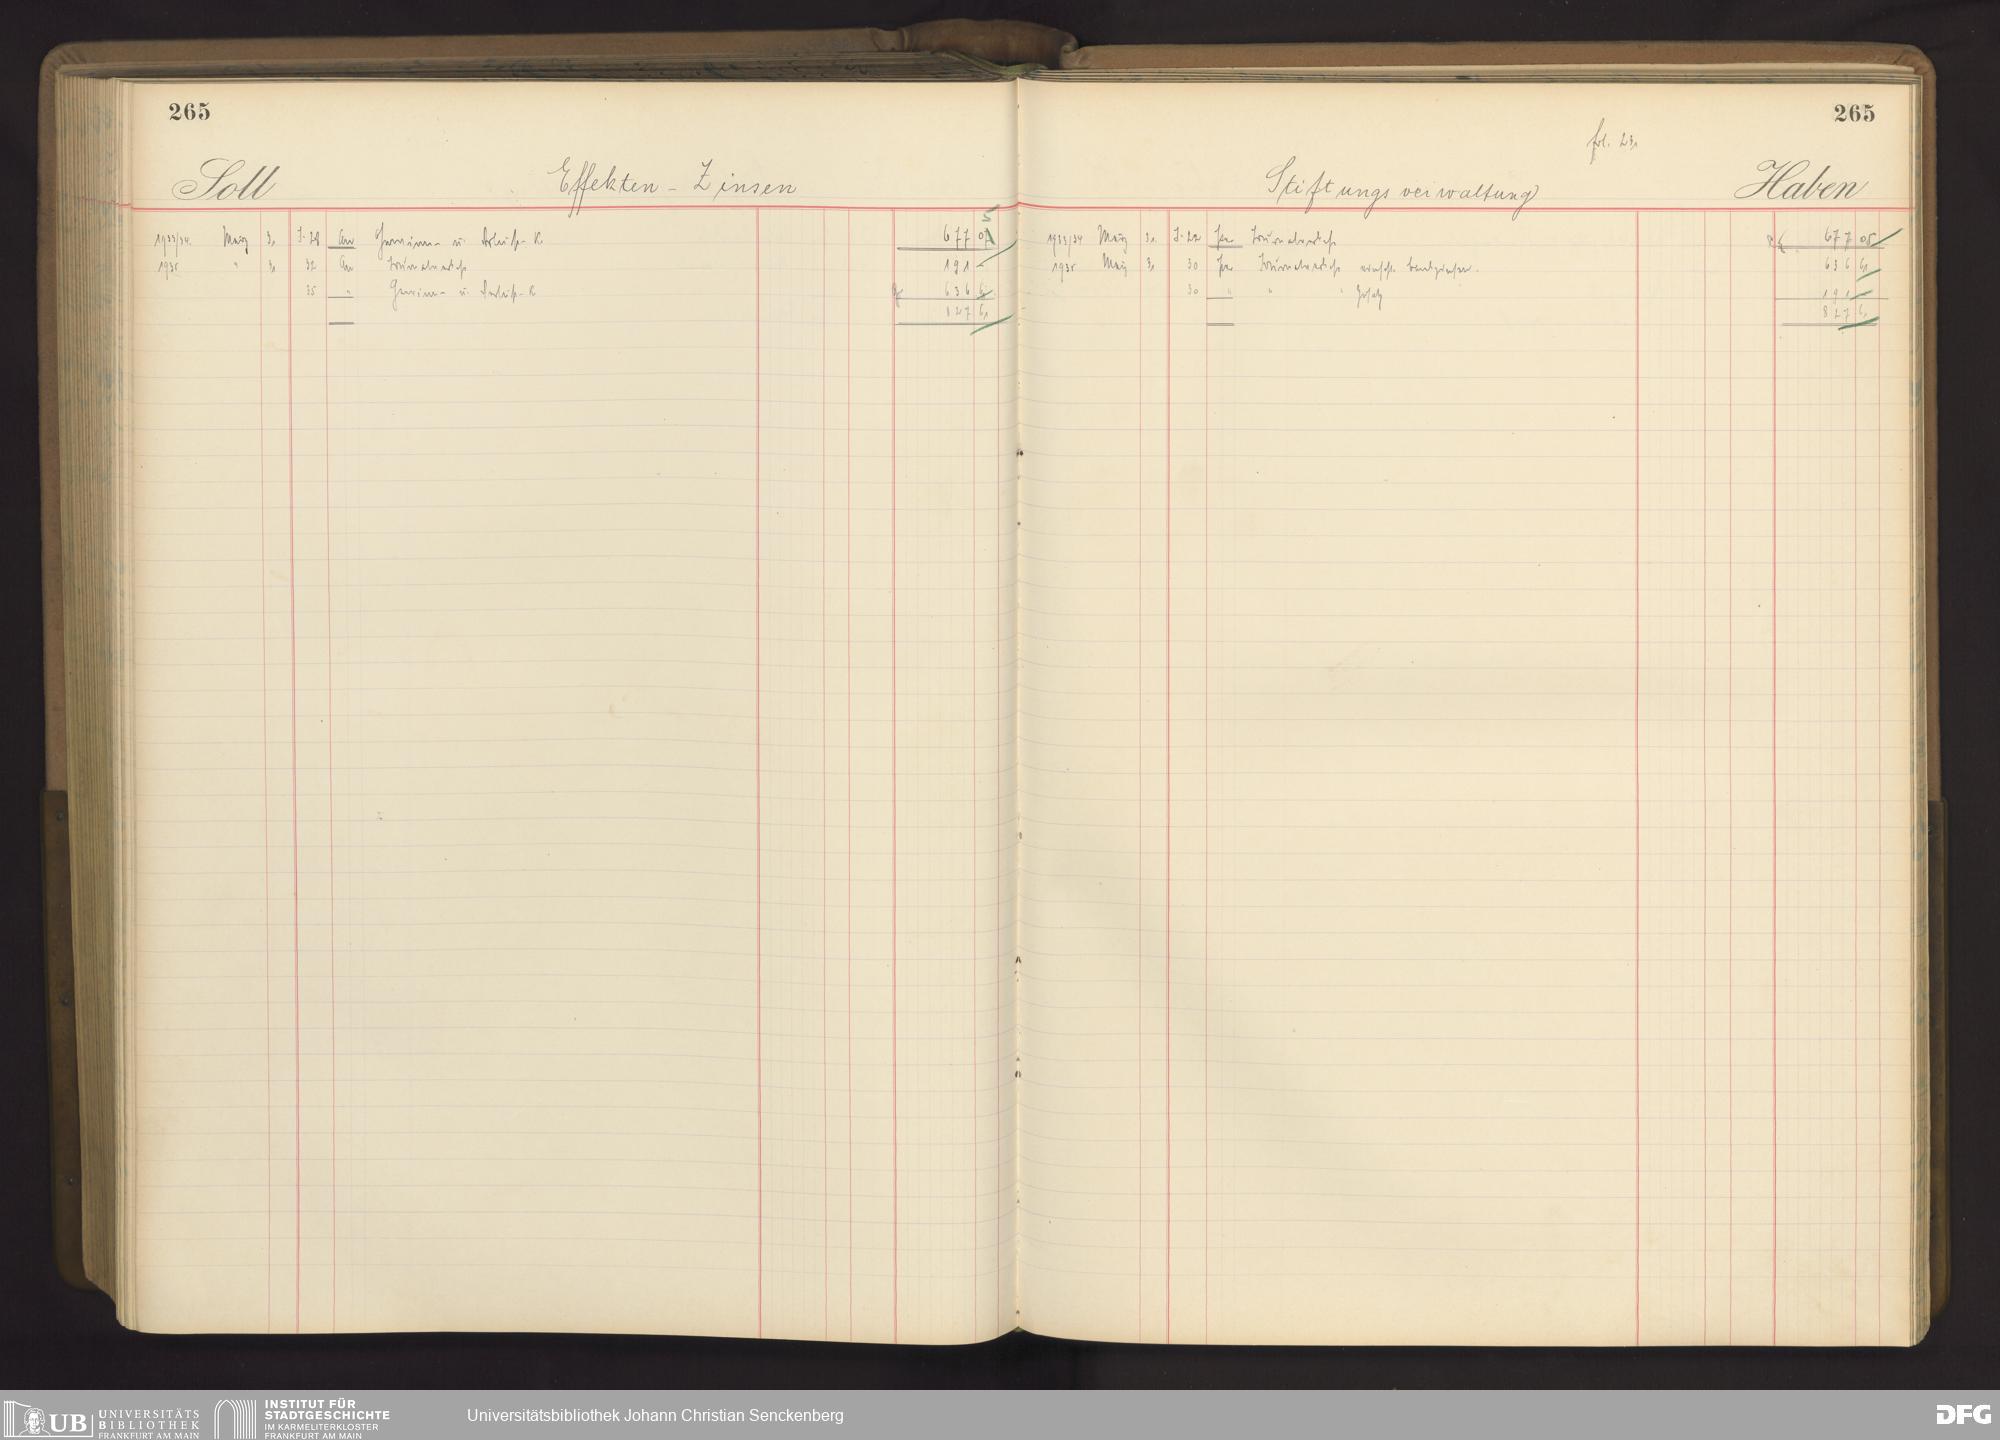 265
Soll Effekten - Zinsen
5
1933/34. März 31 J. 28 An Gewinn- u. Verlust- K. 677 05
1935 " 31 32 An 191 -
35 " Gewinn- u. Verlust- K 636 61
827 61
265
fol. 231
Stiftungsverwaltung Haben
1933/34 März 31. J. 22 Per 677 05
1935 März 31 30 Per 636 61
30 " " " 191 -
827 61
UB UNIVERSITÄTS
BIBLIOTHEK
FRANKFURT AM MAIN
INSTITUT FÜR
STADTGESCHICHTE
IM KARMELITERKLOSTER
FRANKFURT AM MAIN
Universitätsbibliothek Johann Christian Senckenberg
DFG